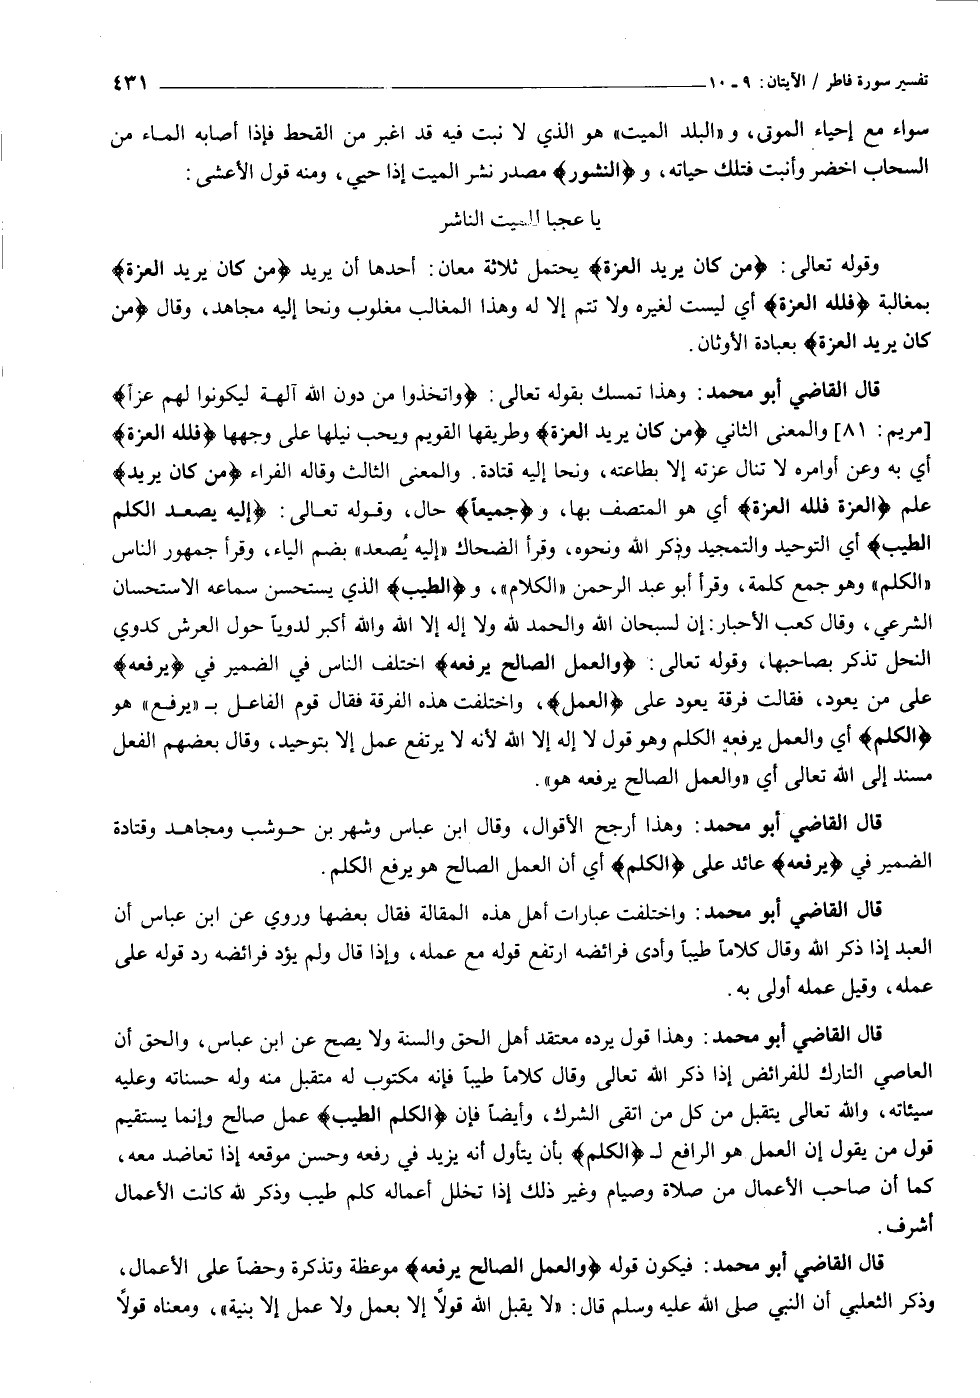 تفسير سورة فاطر / الآيتان: ٩ ـ ١٠ ٤٣١
سواء مع إحياء الموتى، و«البلد الميت» هو الذي لا نبت فيه قد اغبر من القحط فإذا أصابه الماء من
السحاب اخضر وأنبت فتلك حياته، و﴿النشور﴾ مصدر نشر الميت إذا حيي، ومنه قول الأعشى:
يا عجبا للميت الناشر
وقوله تعالى: ﴿من كان يريد العزة﴾ يحتمل ثلاثة معان: أحدها أن يريد ﴿من كان يريد العزة﴾
بمغالبة ﴿فلله العزة﴾ أي ليست لغيره ولا تتم إلا له وهذا المغالب مغلوب ونحا إليه مجاهد، وقال ﴿من
كان يريد العزة﴾ بعبادة الأوثان.
قال القاضي أبو محمد: وهذا تمسك بقوله تعالى: ﴿واتخذوا من دون الله آلهة ليكونوا لهم عزاً﴾
[مريم: ٨١] والمعنى الثاني ﴿من كان يريد العزة﴾ وطريقها القويم ويحب نيلها على وجهها ﴿فلله العزة﴾
أي به وعن أوامره لا تنال عزته إلا بطاعته، ونحا إليه قتادة. والمعنى الثالث وقاله الفراء ﴿من كان يريد﴾
علم ﴿العزة فلله العزة﴾ أي هو المتصف بها، و﴿جميعاً﴾ حال، وقوله تعالى: ﴿إليه يصعد الكلم
الطيب﴾ أي التوحيد والتمجيد وذكر الله ونحوه، وقرأ الضحاك «إليه يُصعد» بضم الياء، وقرأ جمهور الناس
«الكلم» وهو جمع كلمة، وقرأ أبو عبد الرحمن «الكلام»، و﴿الطيب﴾ الذي يستحسن سماعه الاستحسان
الشرعي، وقال كعب الأحبار: إن لسبحان الله والحمد لله ولا إله إلا الله والله أكبر لدوياً حول العرش كدوي
النحل تذكر بصاحبها، وقوله تعالى: ﴿والعمل الصالح يرفعه﴾ اختلف الناس في الضمير في ﴿يرفعه﴾
على من يعود، فقالت فرقة يعود على ﴿العمل﴾، واختلفت هذه الفرقة فقال قوم الفاعل بـ «يرفع» هو
﴿الكلم﴾ أي والعمل يرفعه الكلم وهو قول لا إله إلا الله لأنه لا يرتفع عمل إلا بتوحيد، وقال بعضهم الفعل
مسند إلى الله تعالى أي «والعمل الصالح يرفعه هو».
قال القاضي أبو محمد: وهذا أرجح الأقوال، وقال ابن عباس وشهر بن حوشب ومجاهد وقتادة
الضمير في ﴿يرفعه﴾ عائد على ﴿الكلم﴾ أي أن العمل الصالح هو يرفع الكلم.
قال القاضي أبو محمد: واختلفت عبارات أهل هذه المقالة فقال بعضها وروي عن ابن عباس أن
العبد إذا ذكر الله وقال كلاماً طيباً وأدى فرائضه ارتفع قوله مع عمله، وإذا قال ولم يؤد فرائضه رد قوله على
عمله، وقيل عمله أولى به.
قال القاضي أبو محمد: وهذا قول يرده معتقد أهل الحق والسنة ولا يصح عن ابن عباس، والحق أن
العاصي التارك للفرائض إذا ذكر الله تعالى وقال كلاماً طيباً فإنه مكتوب له متقبل منه وله حسناته وعليه
سيئاته، والله تعالى يتقبل من كل من اتقى الشرك، وأيضاً فإن ﴿الكلم الطيب﴾ عمل صالح وإنما يستقيم
قول من يقول إن العمل هو الرافع لـ ﴿الكلم﴾ بأن يتأول أنه يزيد في رفعه وحسن موقعه إذا تعاضد معه،
كما أن صاحب الأعمال من صلاة وصيام وغير ذلك إذا تخلل أعماله كلم طيب وذكر لله كانت الأعمال
أشرف.
قال القاضي أبو محمد: فيكون قوله ﴿والعمل الصالح يرفعه﴾ موعظة وتذكرة وحضاً على الأعمال،
وذكر الثعلبي أن النبي صلى الله عليه وسلم قال: «لا يقبل الله قولاً إلا بعمل ولا عمل إلا بنية»، ومعناه قولاً